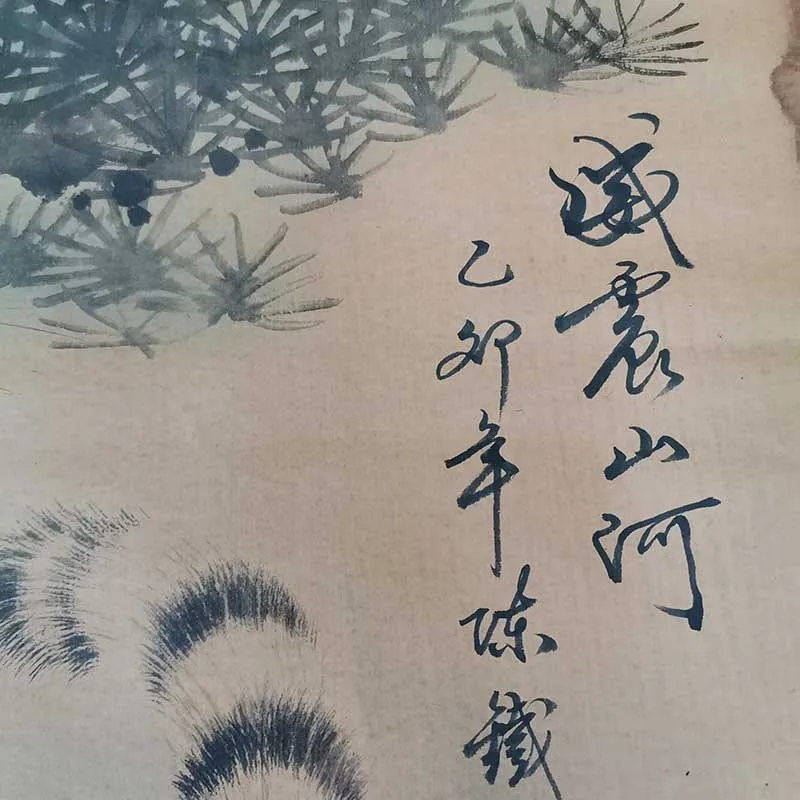 威震山河
乙卯年陈鐵